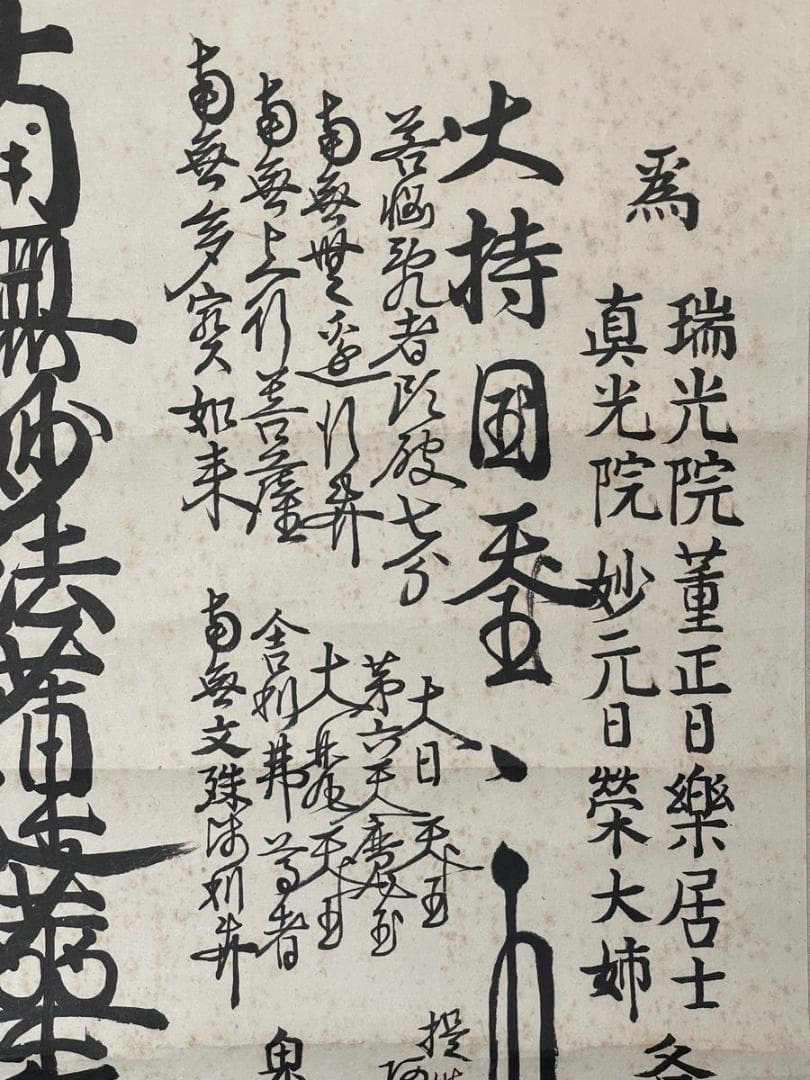 為
瑞光院董正日樂居士
真光院妙元日榮大姉
大持国天王
若悩乱者頭破七分
南無無邊行菩薩
南無上行菩薩
南無多寳如来
南無妙法蓮華
大日天王
第六天魔王
大梵天王
舎利弗尊者
南無文殊師利菩薩
提